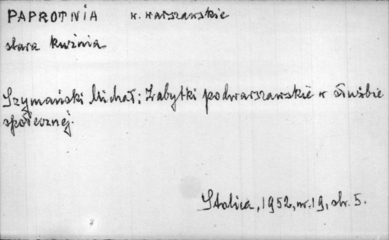 PAPROTNIA w. warszawskie
stara kuźnia
Szymański Michał: Zabytki podwarszawskie w służbie
społecznej.
Stolica, 1952, nr. 19, str. 5.